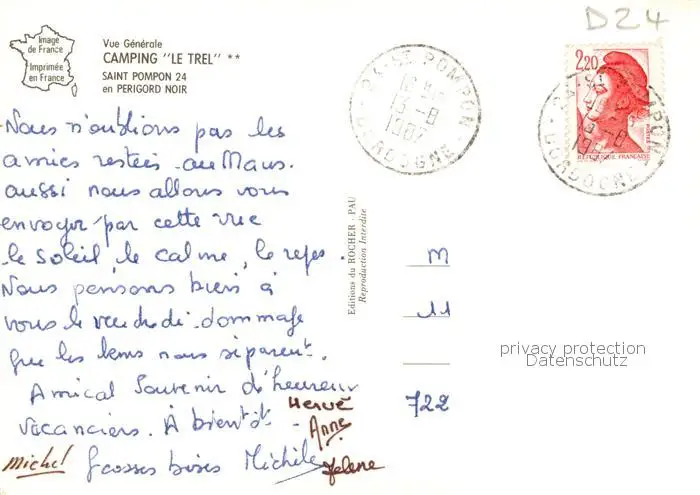 D24
Image
de France
Imprimée
en France
Vue Générale
CAMPING "LE TREL" **
SAINT POMPON 24
en PERIGORD NOIR
24 ST POMPON
13-8
1987
DORDOGNE
2,20
POSTES
REPUBLIQUE FRANÇAISE
Nous n'oublions pas les
amies restées au Mans.
aussi nous allons vous
envoyer par cette vue
le soleil, le calme, le repos.
Nous pensons bien à
vous le vendredi. dommage
que les kms nous séparent.
Amical Souvenir d'heureux
vacanciers. À bientôt -
Hervé
Anne
Michel Grosses bises Michèle
Helene
Editions du ROCHER - PAU
Reproduction Interdite
M
11
722
privacy protection
Datenschutz